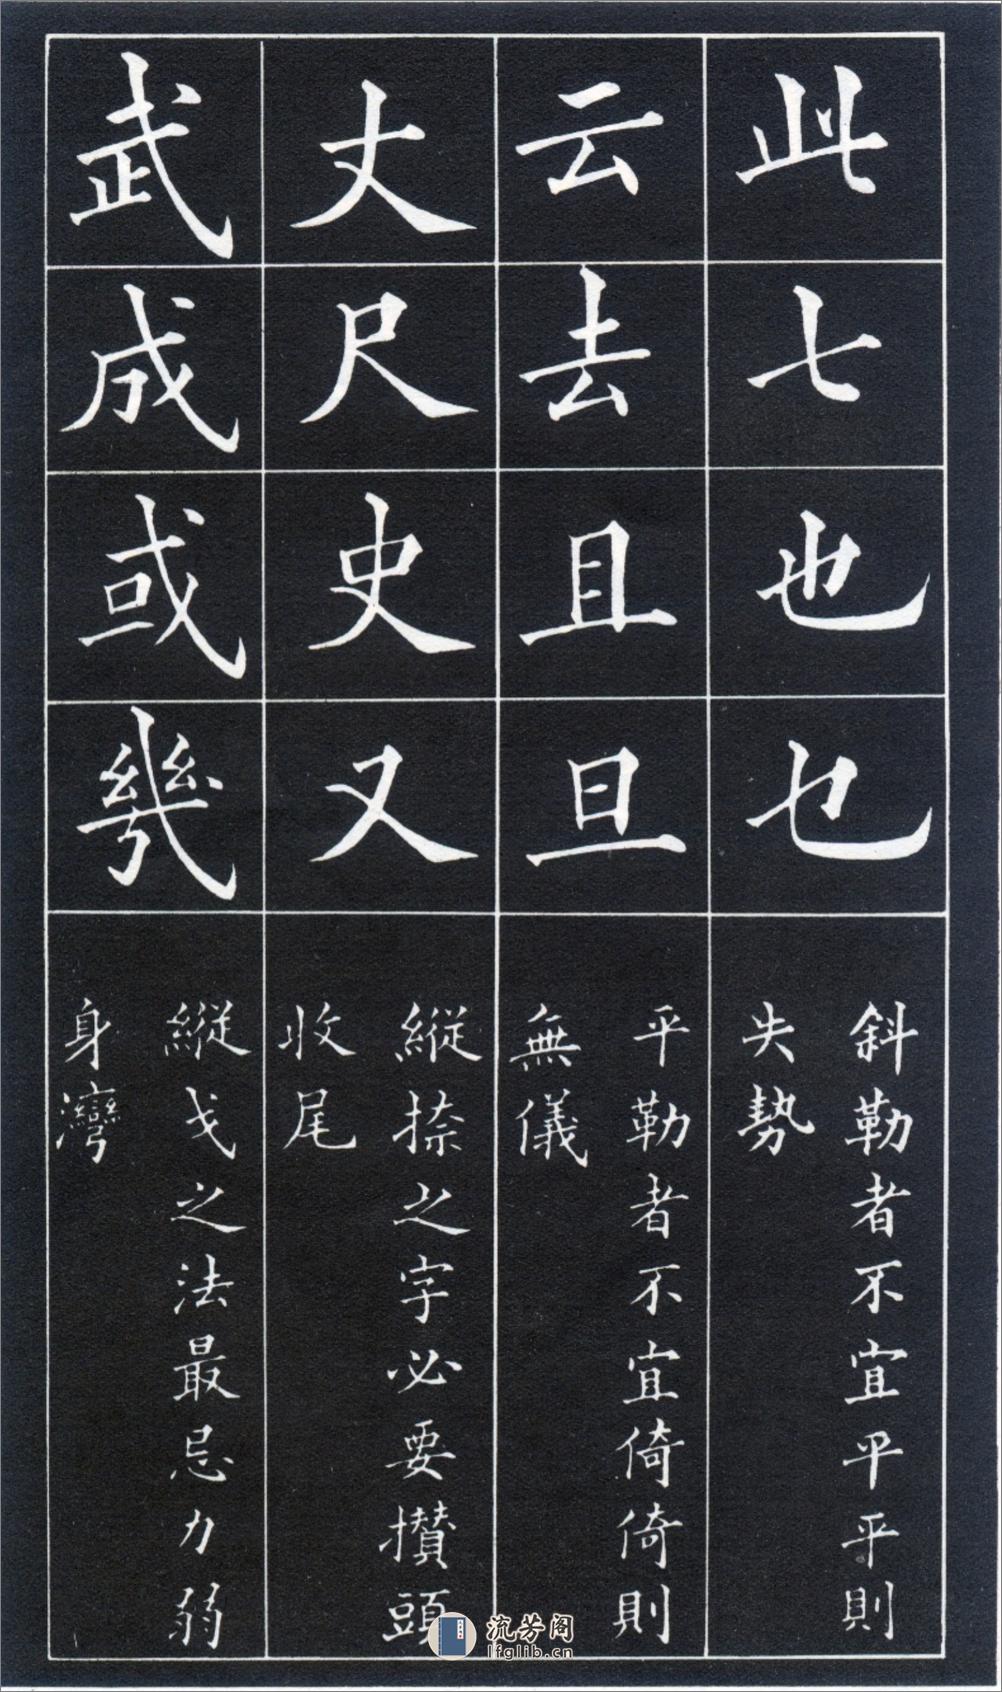 此七也乜
斜勒者不宜平平則
失勢
云去且旦
平勒者不宜倚倚則
無儀
丈尺史又
縦捺之字必要攅頭
收尾
武成或幾
縦戈之法最忌力弱
身灣
流芳阁
lfglib.cn